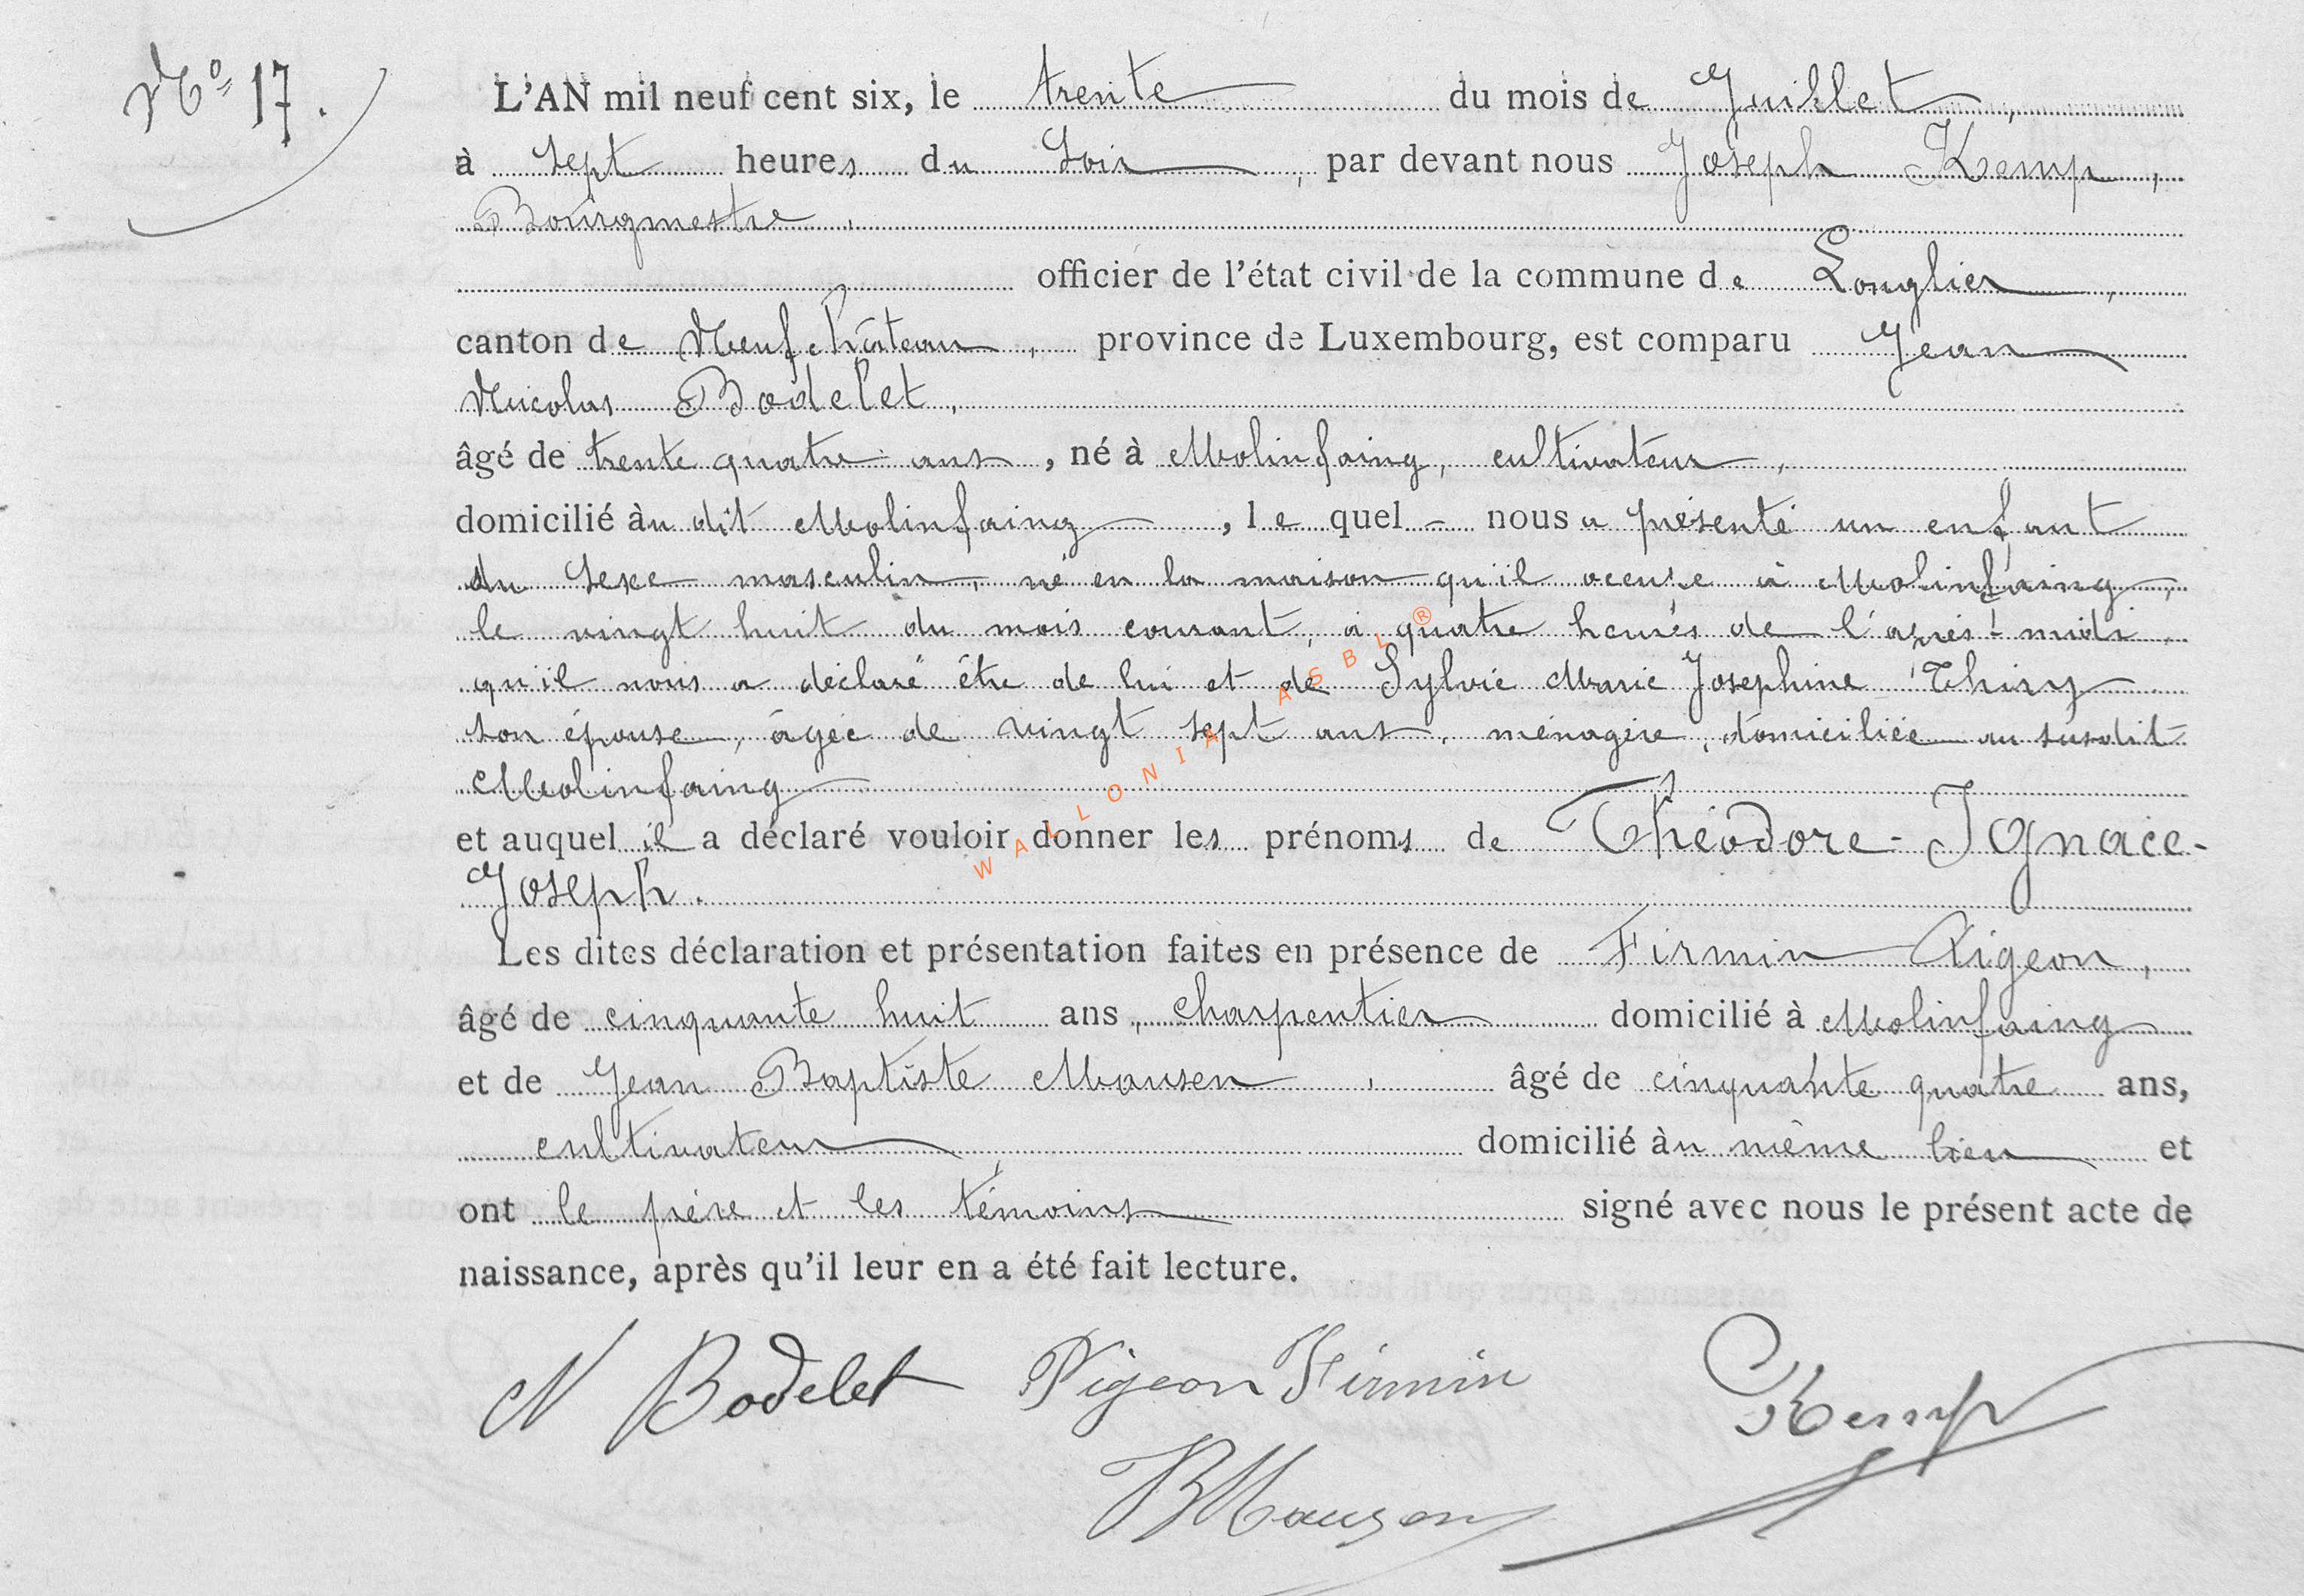 No 17.
L'AN mil neuf cent six, le trente du mois de Juillet,
à sept heures du soir, par devant nous Joseph Kemp,
Bourgmestre,
officier de l'état civil de la commune de Longlier,
canton de Neufchâteau, province de Luxembourg, est comparu Jean
Nicolas Bodelet,
âgé de trente quatre ans, né à Molinfaing, cultivateur,
domicilié au dit Molinfaing, lequel nous a présenté un enfant
du sexe masculin, né en la maison qu'il occupe à Molinfaing,
le vingt huit du mois courant, à quatre heures de l'après-midi
qu'il nous a déclaré être de lui et de Sylvie Marie Josephine Thiry
son épouse, âgée de vingt sept ans, ménagère, domiciliée au susdit
Molinfaing
et auquel il a déclaré vouloir donner les prénoms de Théodore-Ignace-
Joseph.
Les dites déclaration et présentation faites en présence de Firmin Pigeon,
âgé de cinquante huit ans, charpentier domicilié à Molinfaing
et de Jean Baptiste Mausen, âgé de cinquante quatre ans,
cultivateur domicilié au même lieu et
ont le père et les témoins signé avec nous le présent acte de
naissance, après qu'il leur en a été fait lecture.
N Bodelet Pigeon Firmin Kemp
B Mausen
WALLONIA ASBL ®